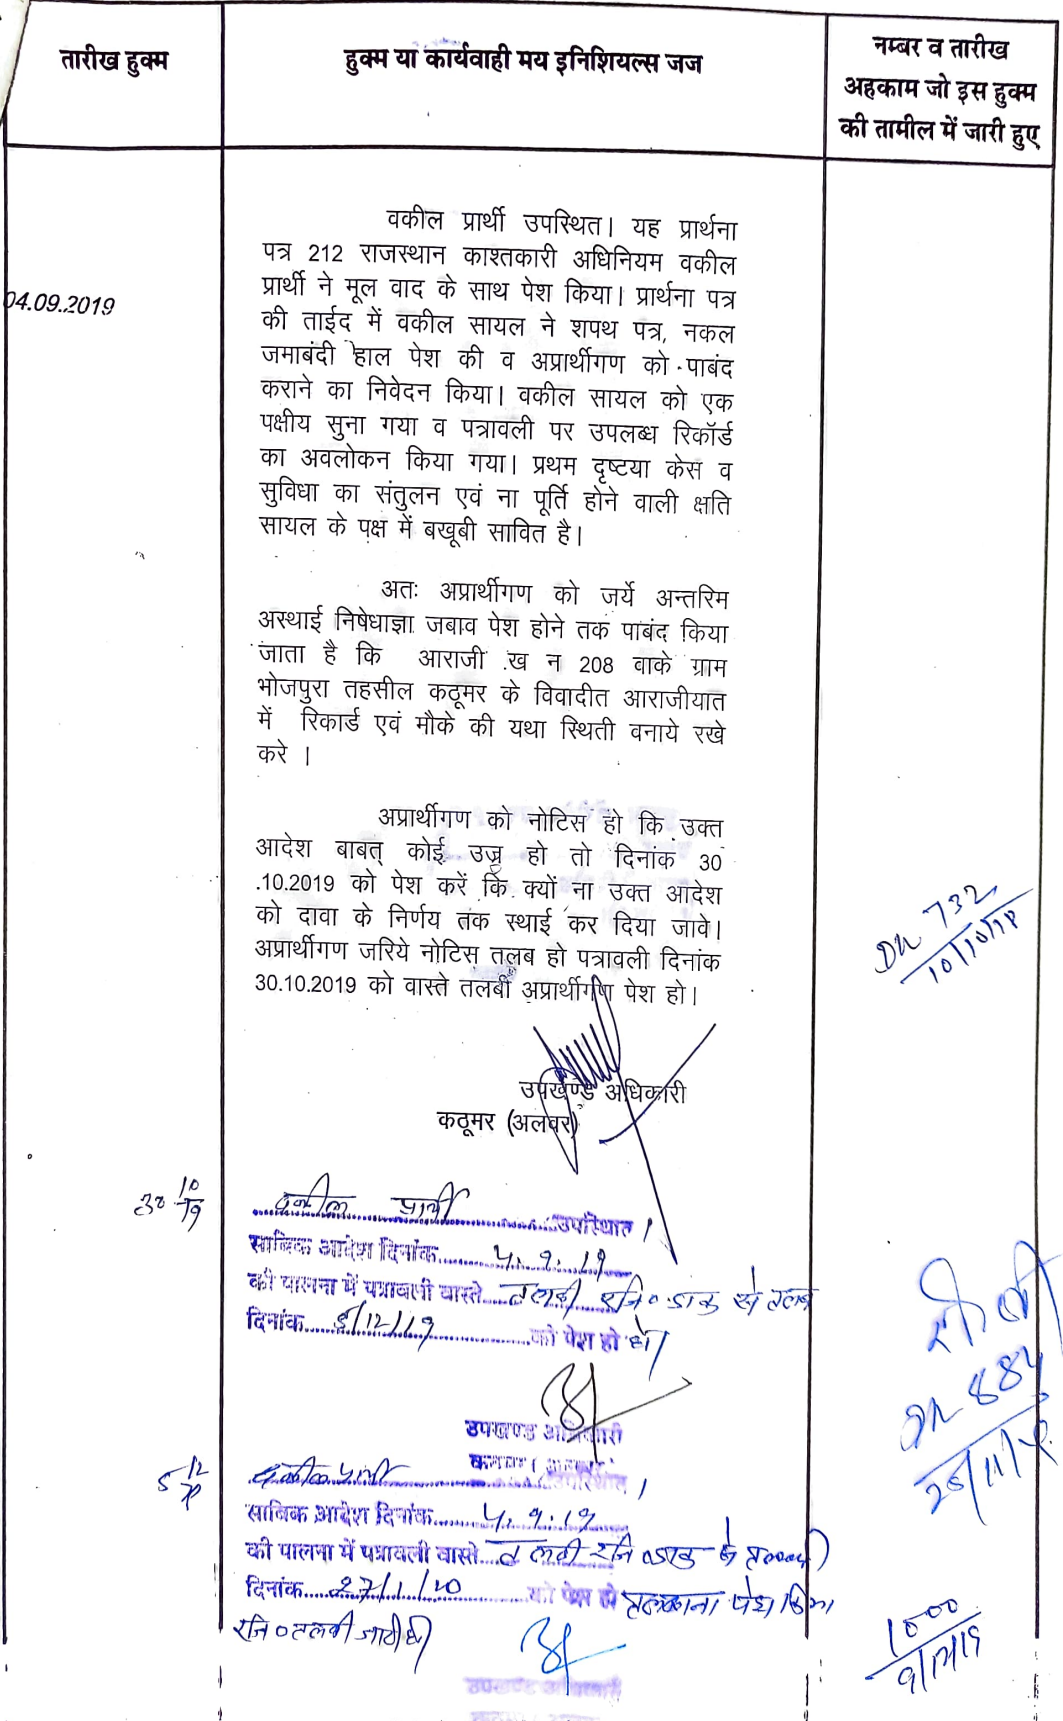 तारीख हुक्म
हुक्म या कार्यवाही मय इनिशियल्स जज
नम्बर व तारीख
अहकाम जो इस हुक्म
की तामील में जारी हुए
04.09.2019
वकील प्रार्थी उपस्थित। यह प्रार्थना
पत्र 212 राजस्थान काश्तकारी अधिनियम वकील
प्रार्थी ने मूल वाद के साथ पेश किया। प्रार्थना पत्र
की ताईद में वकील सायल ने शपथ पत्र, नकल
जमाबंदी हाल पेश की व अप्रार्थीगण को पाबंद
कराने का निवेदन किया। वकील सायल को एक
पक्षीय सुना गया व पत्रावली पर उपलब्ध रिकॉर्ड
का अवलोकन किया गया। प्रथम दृष्टया केस व
सुविधा का संतुलन एवं ना पूर्ति होने वाली क्षति
सायल के पक्ष में बखूबी सावित है।
अतः अप्रार्थीगण को जर्ये अन्तरिम
अस्थाई निषेधाज्ञा जबाव पेश होने तक पाबंद किया
जाता है कि आराजी .ख न 208 वाके ग्राम
भोजपुरा तहसील कठूमर के विवादीत आराजीयात
में रिकार्ड एवं मौके की यथा स्थिती वनाये रखे
करे ।
अप्रार्थीगण को नोटिस हो कि उक्त
आदेश बाबत् कोई उज्र हो तो दिनांक 30
.10.2019 को पेश करें कि क्यों ना उक्त आदेश
को दावा के निर्णय तक स्थाई कर दिया जावे।
अप्रार्थीगण जरिये नोटिस तलब हो पत्रावली दिनांक
30.10.2019 को वास्ते तलबी अप्रार्थीगण पेश हो।
732
10/10/19
उपखण्ड अधिकारी
कठूमर (अलवर)
30 10/19
वकील प्रार्थी उपस्थित।
साबिक आदेश दिनांक 4.9.19
की पालना में पत्रावली वास्ते तलबी रजि० डाक से तलब
दिनांक 5/12/19 को पेश हो
उपखण्ड अधिकारी
884
5 12/19
वकील प्रार्थी उपस्थित।
साबिक आदेश दिनांक 4.9.19
की पालना में पत्रावली वास्ते तलबी रजि० डाक
दिनांक 27/1/20 को पेश हो तलबाना पेश किया
रजि० तलबी जारी हो
1000
9/12/19
उपखण्ड अधिकारी